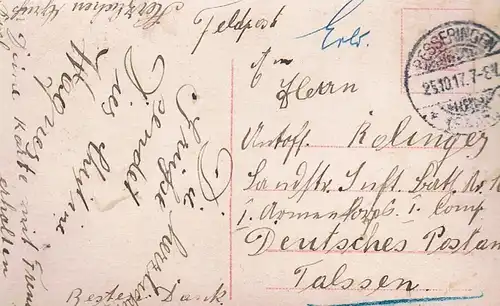 Herzlichen Gruß
Feldpost
BESSERINGEN
25.10.17. 7-8V.
An
Herrn
Antoff. Kolinger
Landstr. Inft. Batl.
1. Armeekorps. 1. Comp
Deutsches Postan
Talssen.
Die herzlich
Grüße
sendet
Wagner
Deine Karte mit Freu
erhalten
Besten Dank